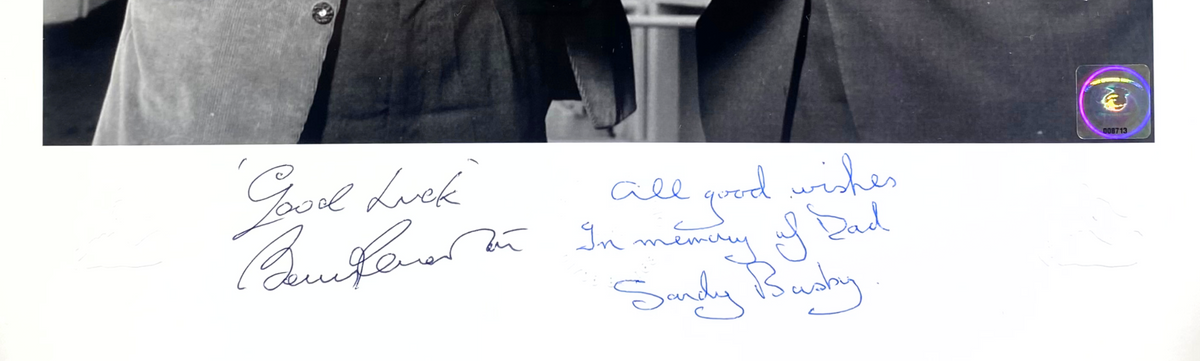 008713
'Good Luck'
All good wishes
In memory of Dad
Sandy Busby